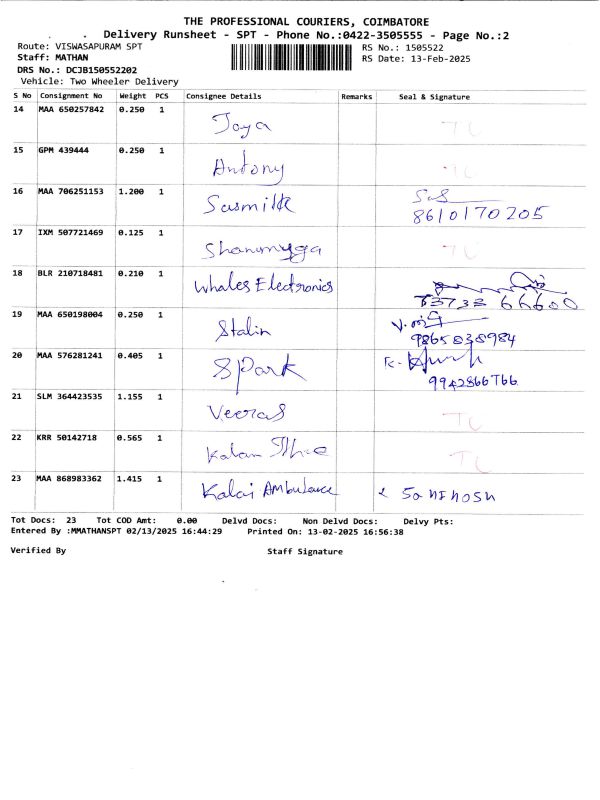 THE PROFESSIONAL COURIERS, COIMBATORE
Delivery Runsheet - SPT - Phone No.:0422-3505555 - Page No.:2
Route: VISWASAPURAM SPT
RS No.: 1505522
Staff: MATHAN
RS Date: 13-Feb-2025
DRS No.: DCJB150552202
Vehicle: Two Wheeler Delivery
S No Consignment No Weight PCS Consignee Details Remarks Seal & Signature
14 MAA 650257842 0.250 1 Joya TC
15 GPM 439444 0.250 1 Antony TC
16 MAA 706251153 1.200 1 Susmitha
8610170205
17 IXM 507721469 0.125 1 Shanmuga TC
18 BLR 210718481 0.210 1 Whales Electronics
66600
19 MAA 650198004 0.250 1 Stalin
9865838984
20 MAA 576281241 0.405 1 Spark
9942866766
21 SLM 364423535 1.155 1 Veeras TC
22 KRR 50142718 0.565 1 Kalan TC
23 MAA 868983362 1.415 1 Kalai Ambulance
Tot Docs: 23 Tot COD Amt: 0.00 Delvd Docs: Non Delvd Docs: Delvy Pts:
Entered By :MMATHANSPT 02/13/2025 16:44:29 Printed On: 13-02-2025 16:56:38
Verified By Staff Signature